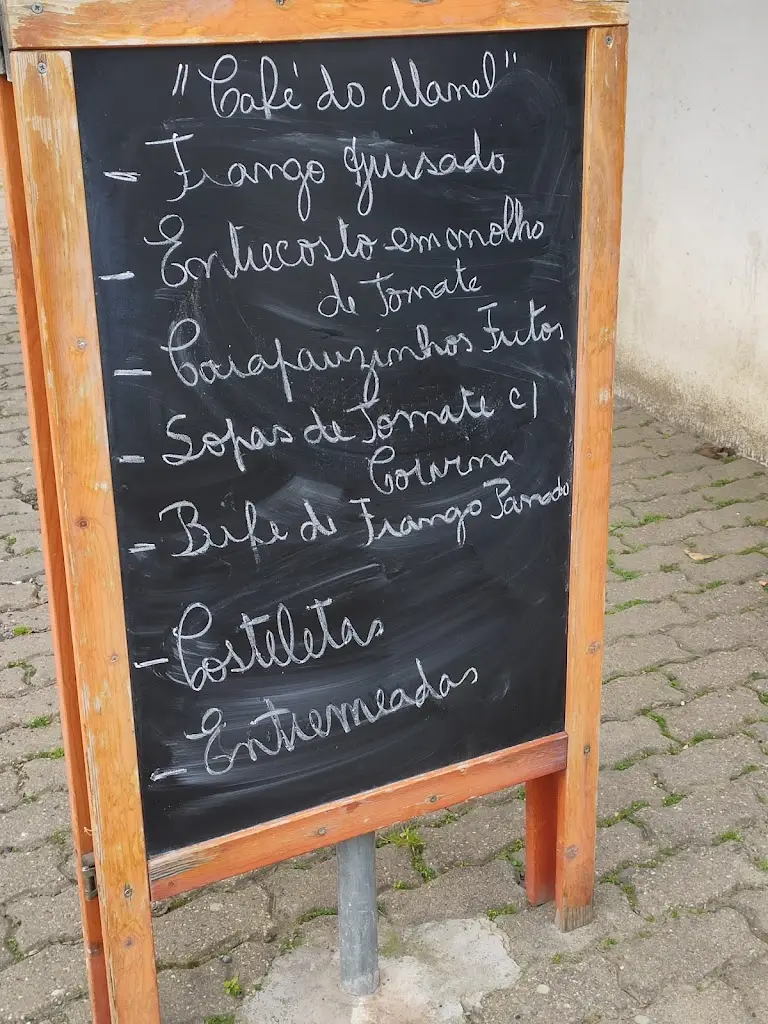 "Café do Manel"
- Frango guisado
- Entrecosto em molho
de Tomate
- Carapauzinhos Fritos
- Sopas de Tomate c/
Corvina
- Bife de Frango Panado
- Costeletas
- Entremeadas